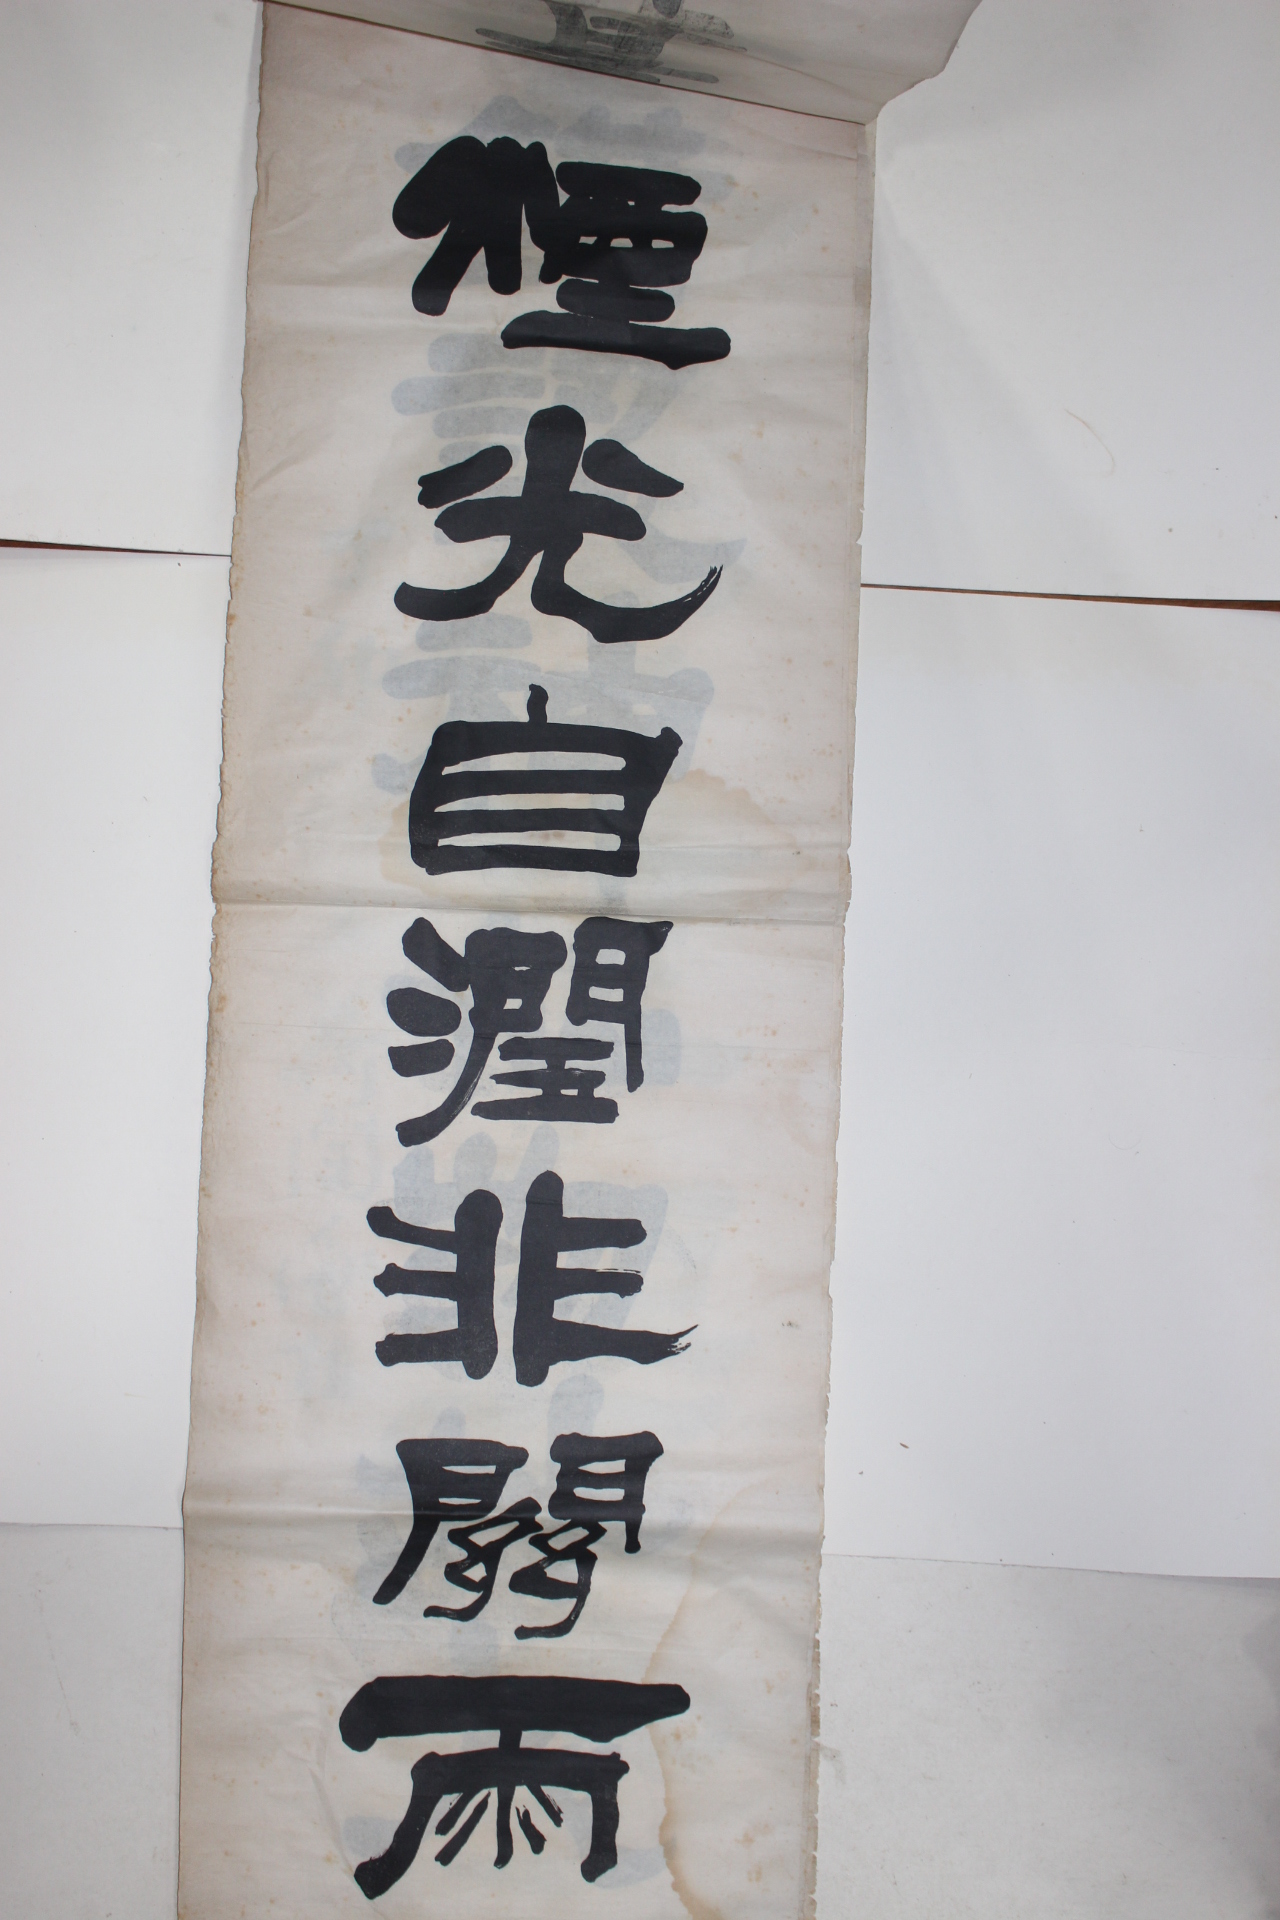 煙光自潤非關雨